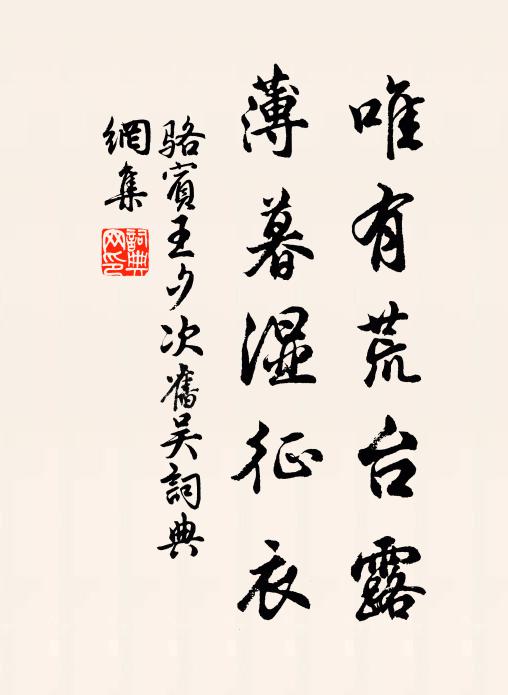 唯有荒台露
薄暮湿征衣
骆宾王夕次舊吴詞典
網集
詞典
网印